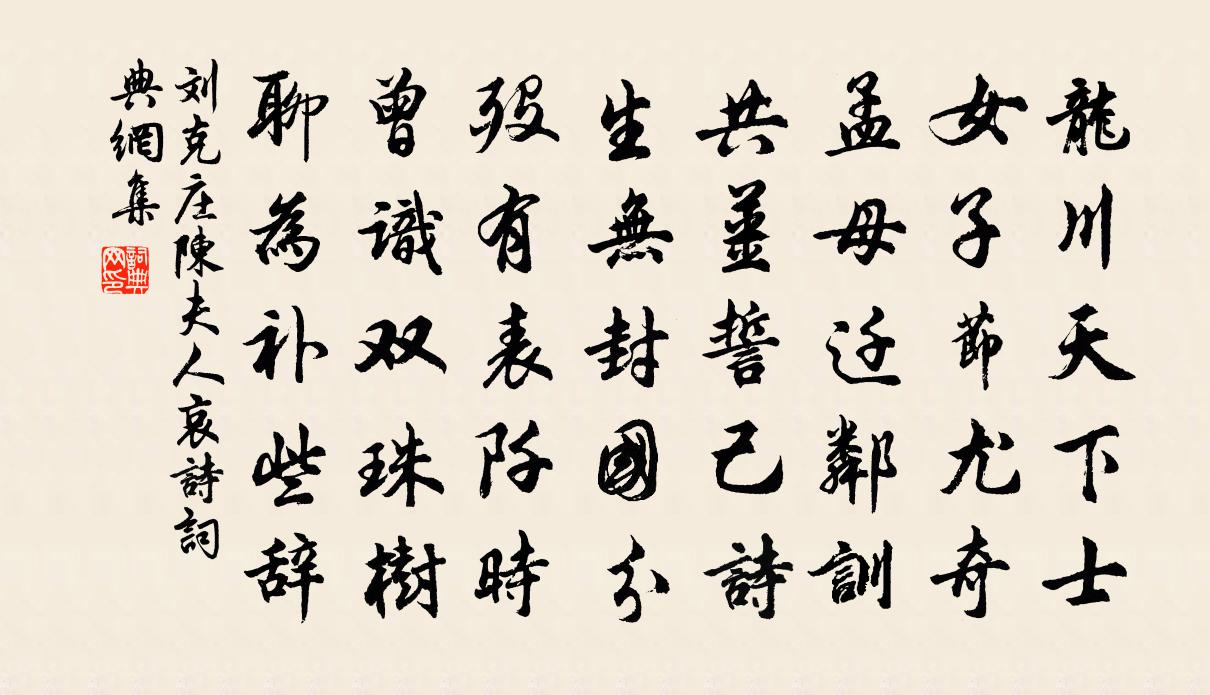 龍川天下士
女子節尤奇
孟母迁鄰訓
共薑誓己詩
生無封國分
歿有表阡時
曾識双珠樹
聊為补些辞
刘克庄陳夫人哀詩詞
典網集
詞典网印